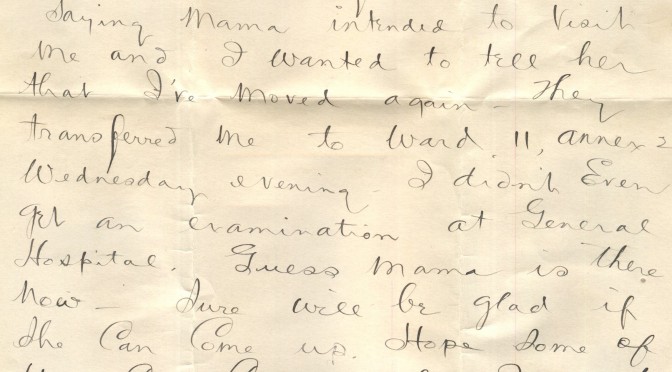 Saying Mama intended to Visit
Me and I wanted to tell her
that I've moved again - They
transferred me to Ward 11, annex 2
Wednesday evening - I didn't Even
get an examination at General
Hospital. Guess Mama is there
Now - Sure will be glad if
She Can Come up. Hope Some of